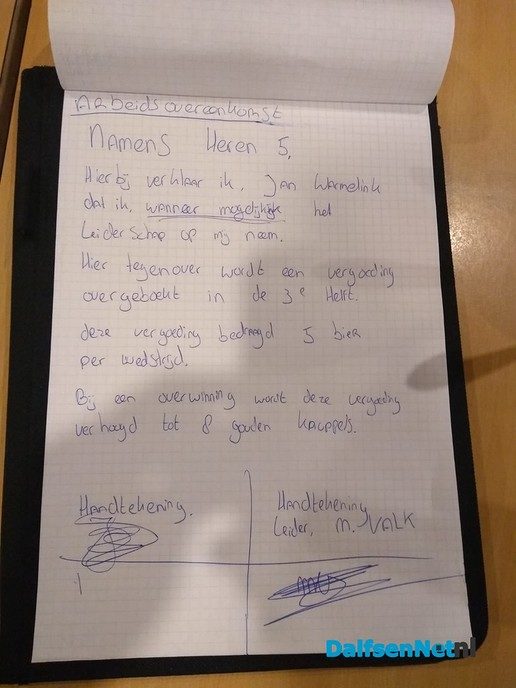 Arbeidsovereenkomst
Namens Heren 5.
Hierbij verklaar ik, Jan Warmelink
dat ik, wanneer mogelijkijk het
Leiderschap op mij neem.
Hier tegenover wordt een vergoeding
overgeboekt in de 3e Helft.
deze vergoeding bedraagd 5 bier
per wedstrijd.
Bij een overwinning wordt deze vergoeding
verhoogd tot 8 gouden knuppels.
Handtekening.
Handtekening
Leider, M. VALK
DalfsenNet.nl